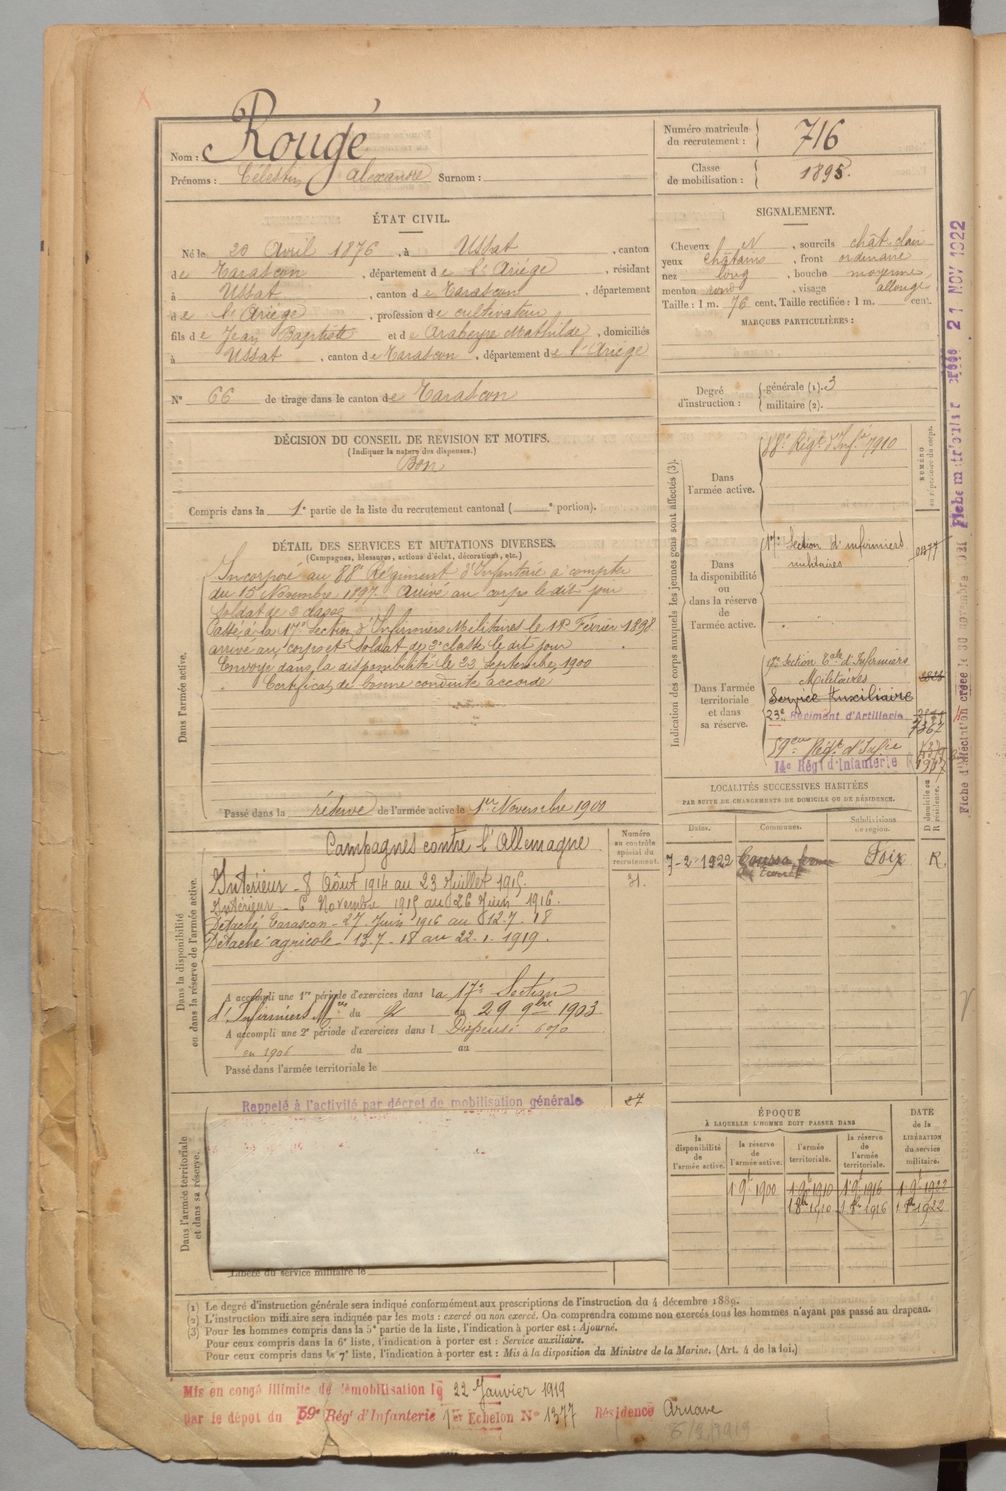 Nom : Rougé
Prénoms : Célestin Alexandre Surnom :
Numéro matricule du recrutement : 716
Classe de mobilisation : 1895.
ÉTAT CIVIL.
Né le 20 Avril 1876, à Ussat, canton
de Tarascon, département de l'Ariège, résidant
à Ussat, canton de Tarascon, département
de l'Ariège, profession de cultivateur,
fils de Jean Baptiste et de Arabeyre Mathilde, domiciliés
à Ussat, canton de Tarascon, département de l'Ariège
N° 66 de tirage dans le canton de Tarascon
SIGNALEMENT.
Cheveux N, sourcils chât clair
yeux châtains, front ordinaire
nez long, bouche moyenne,
menton rond, visage allongé
Taille : 1 m. 76 cent. Taille rectifiée : 1 m. cent.
MARQUES PARTICULIÈRES :
Degré d'instruction : générale (1). 3
militaire (2).
DÉCISION DU CONSEIL DE REVISION ET MOTIFS.
(Indiquer la nature des dispenses.)
Bon
Compris dans la 1e partie de la liste du recrutement cantonal ( e portion).
DÉTAIL DES SERVICES ET MUTATIONS DIVERSES.
(Campagnes, blessures, actions d'éclat, décorations, etc.)
Dans l'armée active.
Incorporé au 88e Régiment d'Infanterie à compter
du 15 Novembre 1897. Arrivé au corps le dit jour
Soldat de 2e classe
Passé à la 17e Section d'Infirmiers Militaires le 1er Février 1898
arrivé au corps et soldat de 2e classe le dit jour
Envoyé dans la disponibilité le 23 Septembre 1900
Certificat de bonne conduite accordé
Passé dans la réserve de l'armée active le 1er Novembre 1900
Indication des corps auxquels les jeunes gens sont affectés (3).
NUMÉRO au répertoire du corps.
Dans l'armée active.
88e Régt d'Infie 7910
Dans la disponibilité ou dans la réserve de l'armée active.
17e Section d'infirmiers
militaires
Dans l'armée territoriale et dans sa réserve.
Militaires
Service Auxiliaire
23e Régiment d'Artillerie
59ème Régt d'Infie
14e Régt d'Infanterie
LOCALITÉS SUCCESSIVES HABITÉES
PAR SUITE DE CHANGEMENTS DE DOMICILE OU DE RÉSIDENCE.
Dates. Communes. Subdivisions de région. D domicile ou R résidence.
7-2-1922 Foix R.
Dans la disponibilité ou dans la réserve de l'armée active.
Numéro au contrôle spécial du recrutement.
Campagnes contre l'Allemagne
Intérieur - 8 Août 1914 au 23 Juillet 1915.
Intérieur - 6 Novembre 1915 au 26 Juin 1916.
Détaché Tarascon - 27 Juin 1916 au 12.7.18
Détaché agricole - 13.7.18 au 22.1.1919.
A accompli une 1re période d'exercices dans la 17e Section
d'Infirmiers Mres du 2 au 29 9bre 1903
A accompli une 2e période d'exercices dans l Dispensé
en 1906 du au
Passé dans l'armée territoriale le
Dans l'armée territoriale et dans sa réserve.
Rappelé à l'activité par décret de mobilisation générale
Libéré du service militaire le
ÉPOQUE
À LAQUELLE L'HOMME DOIT PASSER DANS
la disponibilité de l'armée active. la réserve de l'armée active. l'armée territoriale. la réserve de l'armée territoriale. DATE de la LIBÉRATION du service militaire.
1 9e 1900 1 9e 1910 1 9e 1916 1 9e 1922
1 8e 1910 1 8e 1916 1 8e 1922
(1) Le degré d'instruction générale sera indiqué conformément aux prescriptions de l'instruction du 4 décembre 1889.
(2) L'instruction militaire sera indiquée par les mots : exercé ou non exercé. On comprendra comme non exercés tous les hommes n'ayant pas passé au drapeau.
(3) Pour les hommes compris dans la 5e partie de la liste, l'indication à porter est : Ajourné.
Pour ceux compris dans la 6e liste, l'indication à porter est : Service auxiliaire.
Pour ceux compris dans la 7e liste, l'indication à porter est : Mis à la disposition du Ministre de la Marine. (Art. 4 de la loi.)
Mis en congé illimité de démobilisation le 22 Janvier 1919
par le dépôt du 59e Régt d'Infanterie 1er Echelon N° 1377 Résidence Arnave